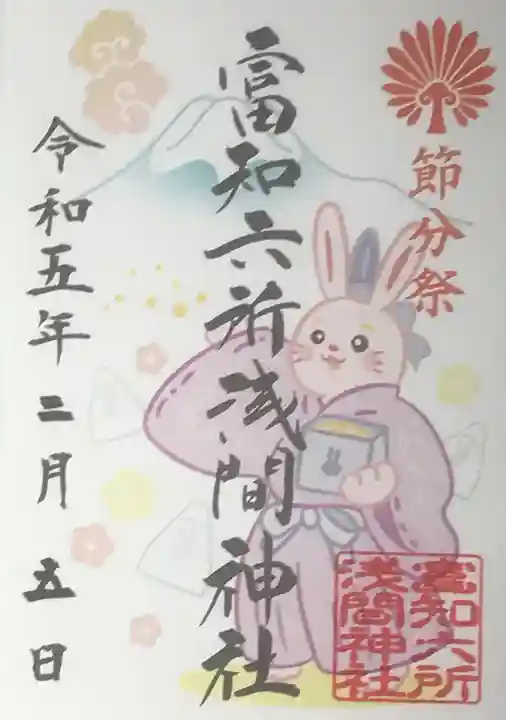 節分祭
富知六所浅間神社
令和五年二月五日
富知六所
浅間神社